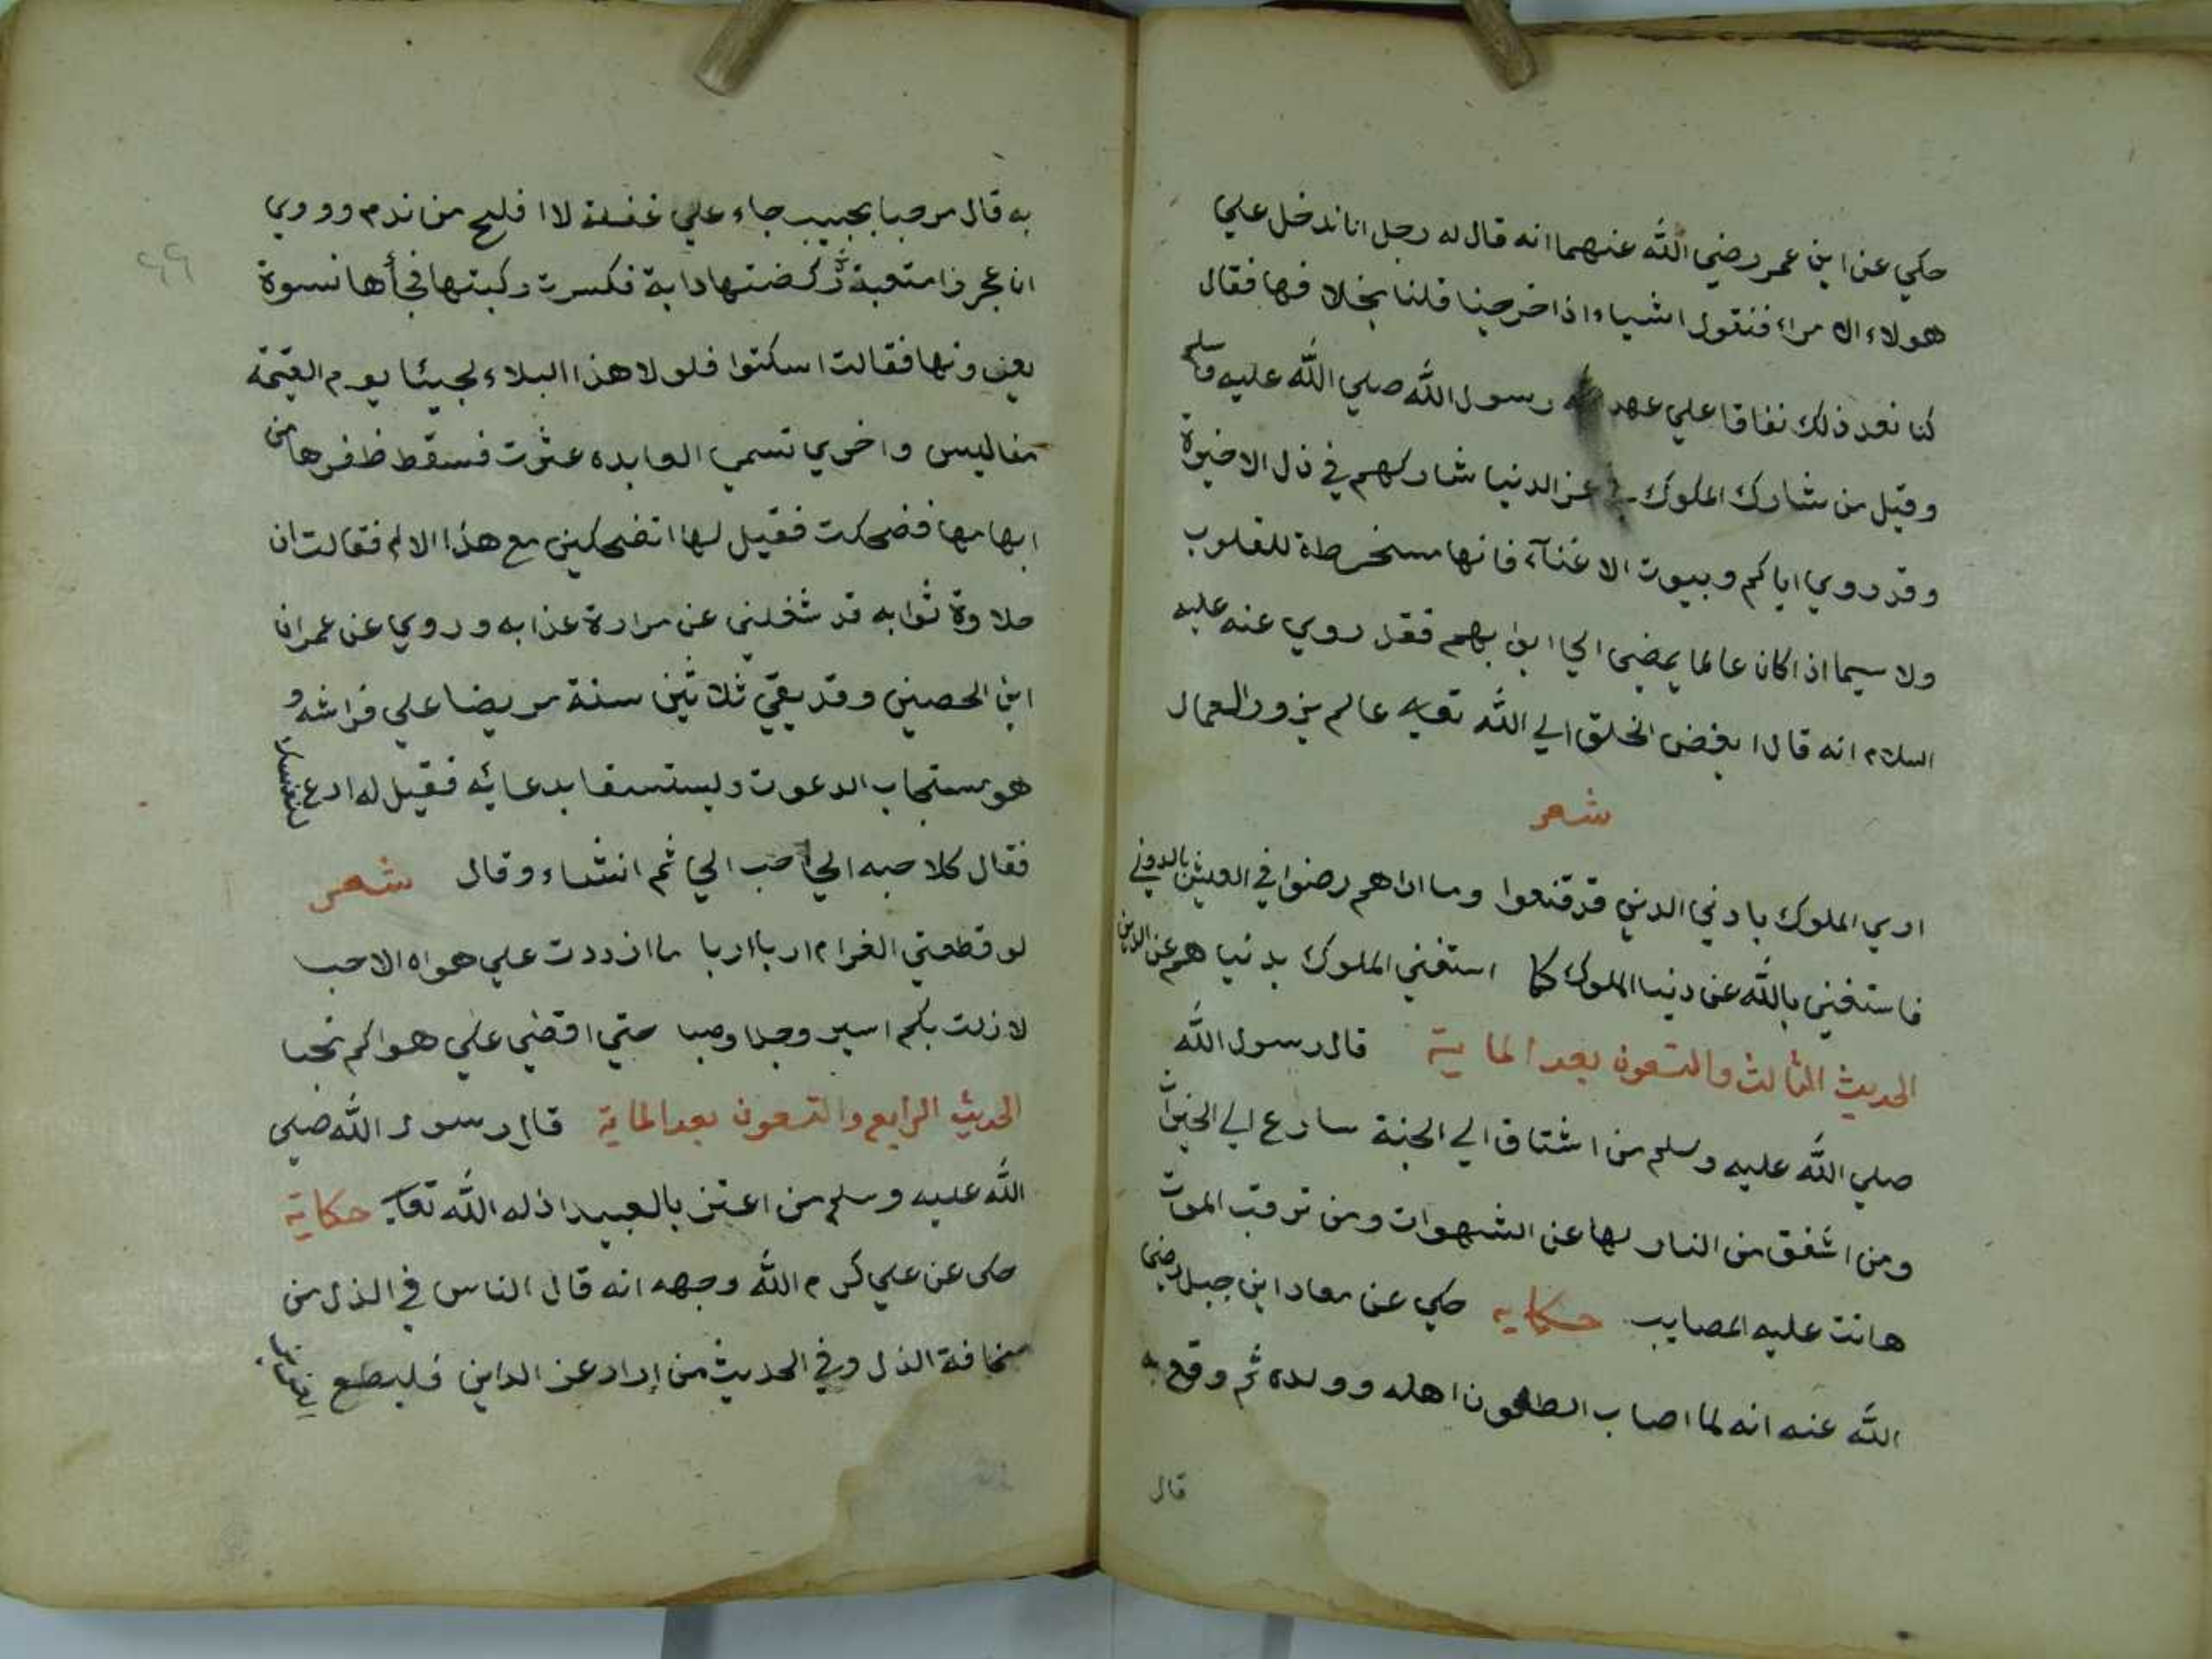 حكي عن ابن عمر رضي الله عنهما انه قال له رجل انا ندخل علي
هولاء الامراء فنقول اشياء اذا خرجنا قلنا بخلا فها فقال
كنا نعد ذلك نفاقا علي عهد رسول الله صلي الله عليه وسلم
وقيل من شارك الملوك في عز الدنيا شاركهم في ذل الاخيرة
وقد روي اياكم وبيوت الاغنآء فانها مسخرطة للقلوب
ولا سيما اذا كان عالما يمضي الي ابوابهم فقد روي عنه عليه
السلام انه قال ابغض الخلق الي الله تعالي عالم يزور العمال
شعر
اري الملوك بادني الدين قد قنعوا وما اراهم رضوا في العيش بالدوني
فاستغني بالله عن دنيا الملوك كما استغني الملوك بدنيا هم عن الدين
الحديث الثالث والتسعون بعد الماية قال رسول الله
صلي الله عليه وسلم من اشتاق الي الجنة سارع الي الخيرات
ومن اشفق من النار لها عن الشهوات ومن ترقب الموت
هانت عليه المصايب حكايه حكي عن معاد ابن جبل رضي
الله عنه انه لما اصاب الطاعون اهله وولده ثم وقع به
قال
٩٩
به قال مرحبا بحبيب جاء علي غفلة لا افلح من ندم وروي
ان عجوزا متعبدة ركضتها دابة فكسرت ركبتها فجأها نسوة
يعزونها فقالت اسكتوا فلولا هذا البلاء لجيئنا يوم القيمة
مفاليس واخري تسمي العابده عثرت فسقط ظفرها من
ابهامها فضحكت فقيل لها اتضحكين مع هذا الالم فقالت ان
حلاوة ثوابه قد شغلني عن مرارة عذابه وروي عن عمران
ابن الحصين وقد بقي ثلاثين سنة مريضا علي فراشه و
هو مستجاب الدعوت ويستسقا بدعائه فقيل له ادع لنفسك
فقال كلا حبه الي احب الي ثم انشاء وقال شعر
لو قطعتي الغرام اربا اربا ما ازددت علي هواه الا حب
لا زلت بكم اسير وجدا وصبا حتي اقضي علي هواكم نحبا
الحديث الرابع والتسعون بعد الماية قال رسول الله صلي
الله عليه وسلم من اعتز بالعبيد اذله الله تعالي حكاية
حكي عن علي كرم الله وجهه انه قال الناس في الذل من
مخافة الذل وفي الحديث من اراد عز الداين فليطع